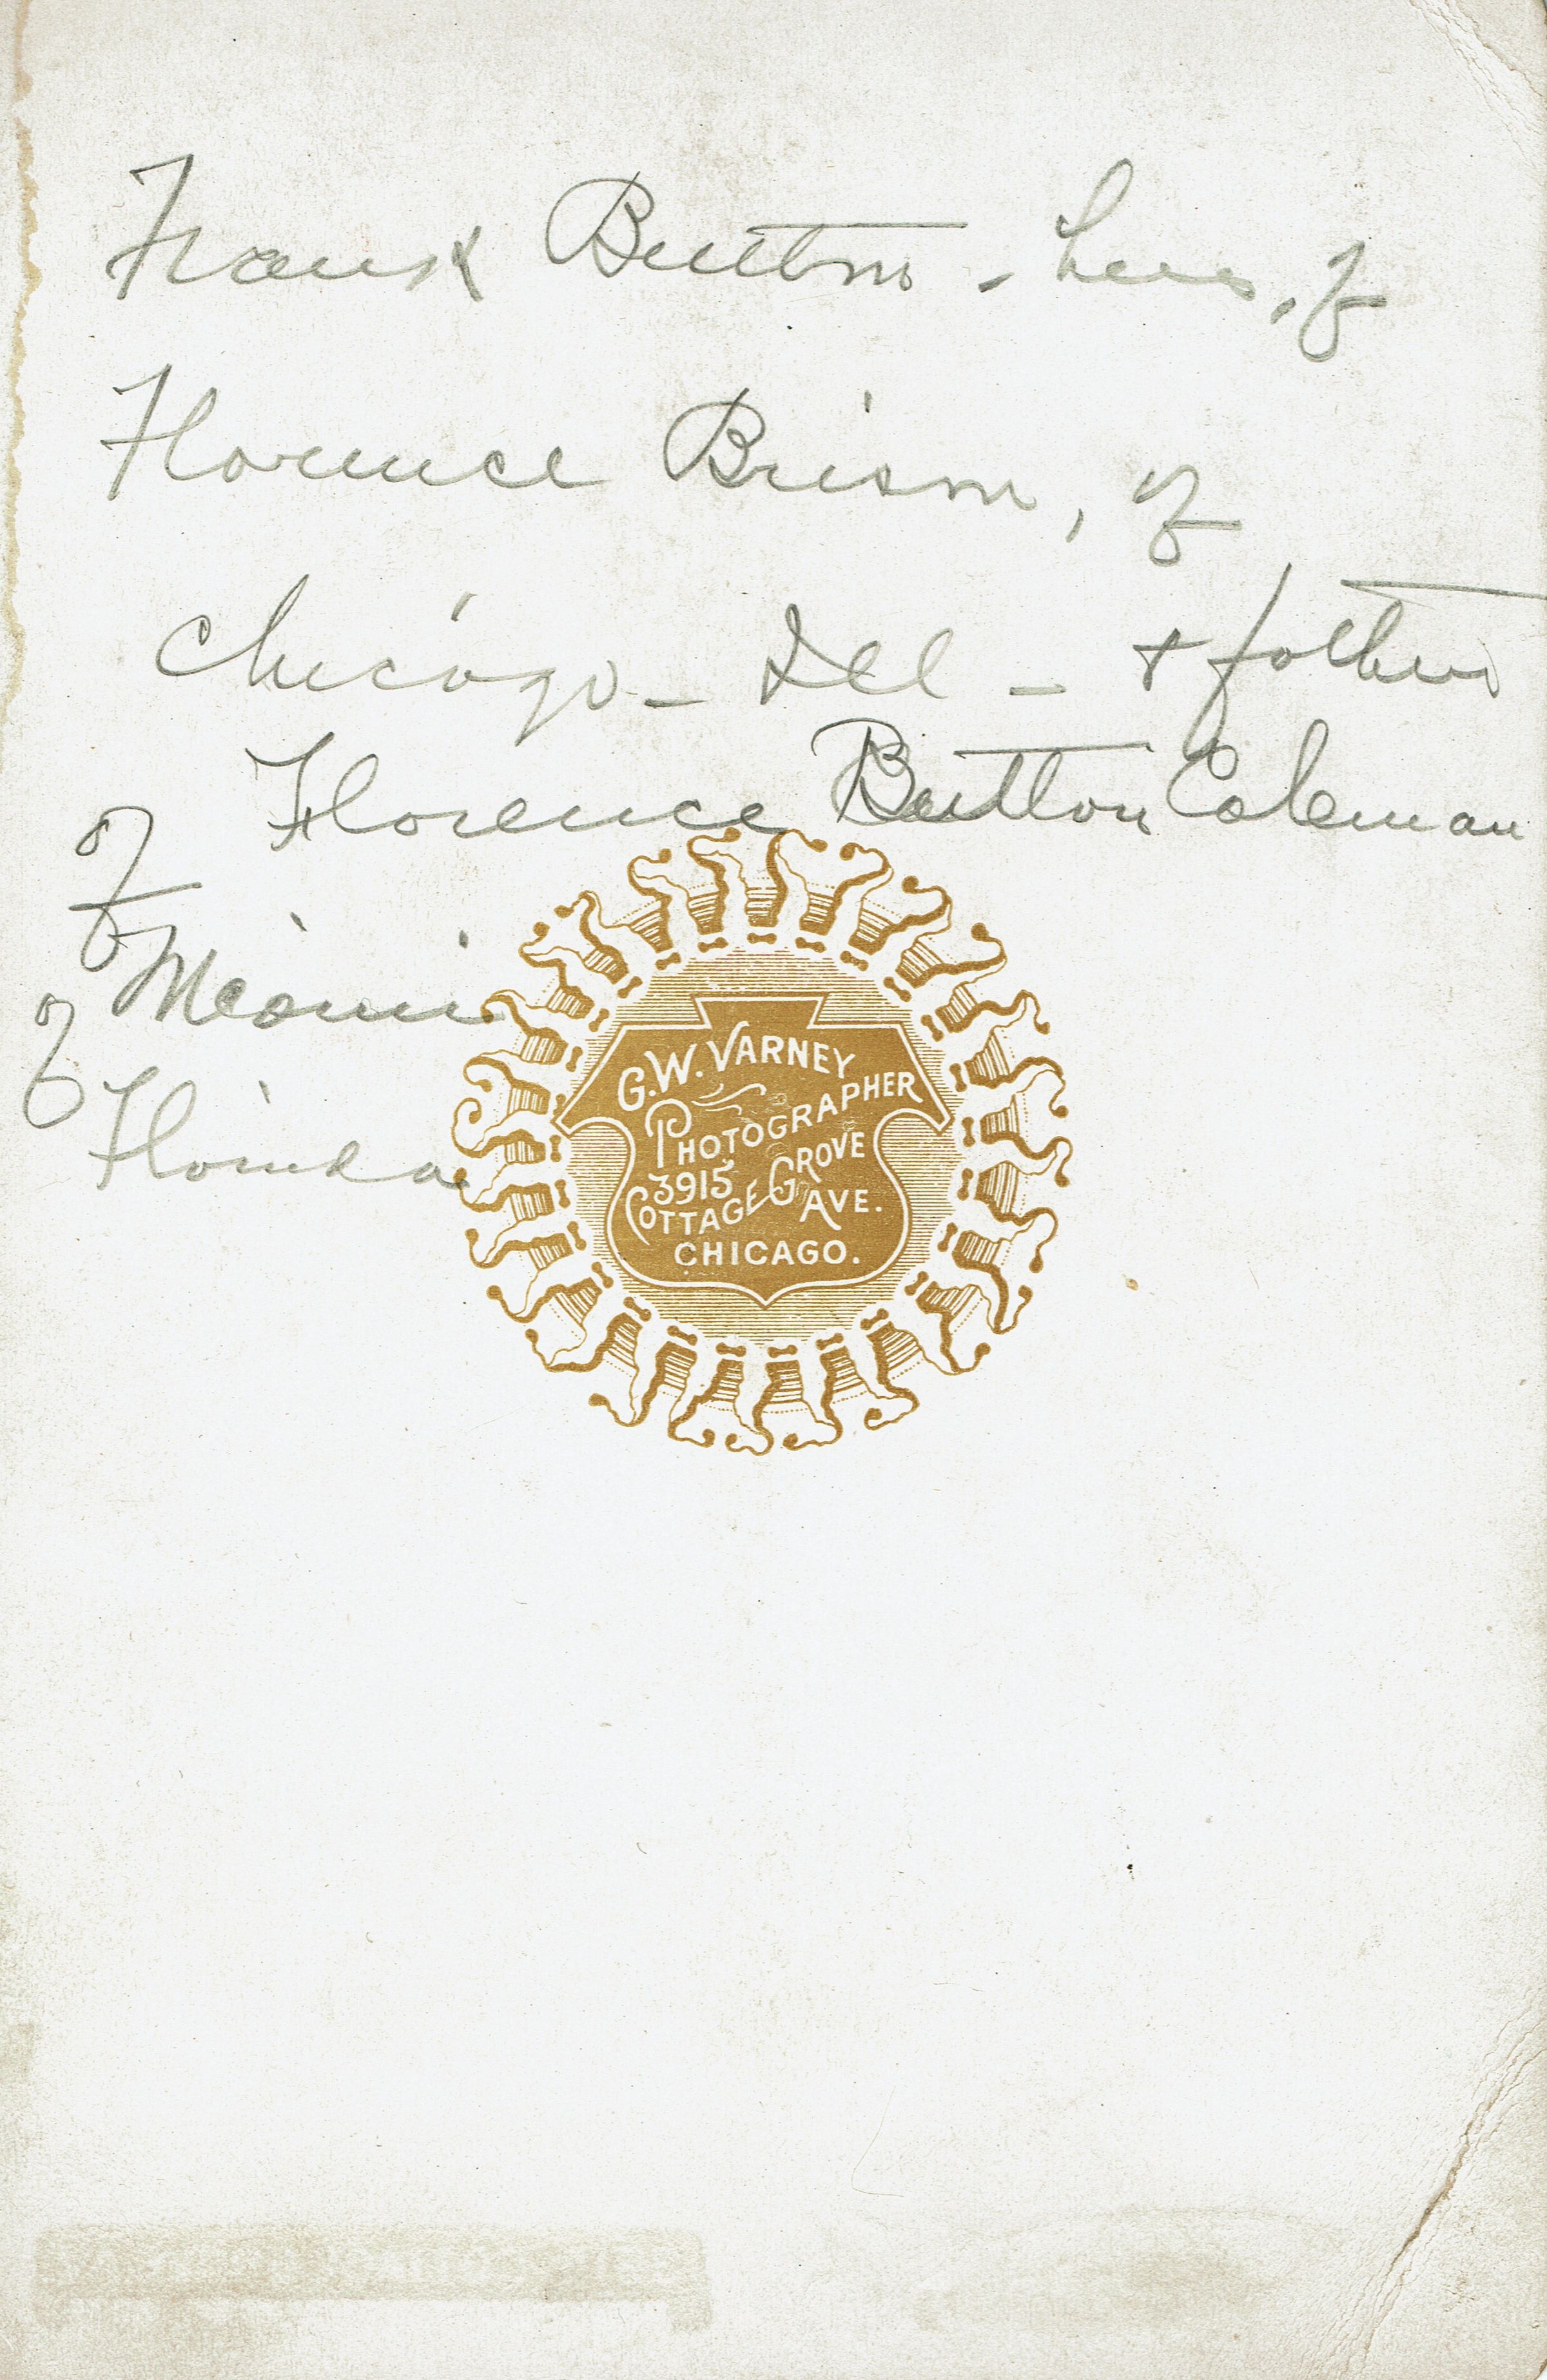 Frank Button - hus. of
Florence Brism, of
Chicago - Ill - + father
of Florence Button Coleman
of Miami
of Florida
G.W. VARNEY
PHOTOGRAPHER
3915
COTTAGE GROVE
AVE.
CHICAGO.